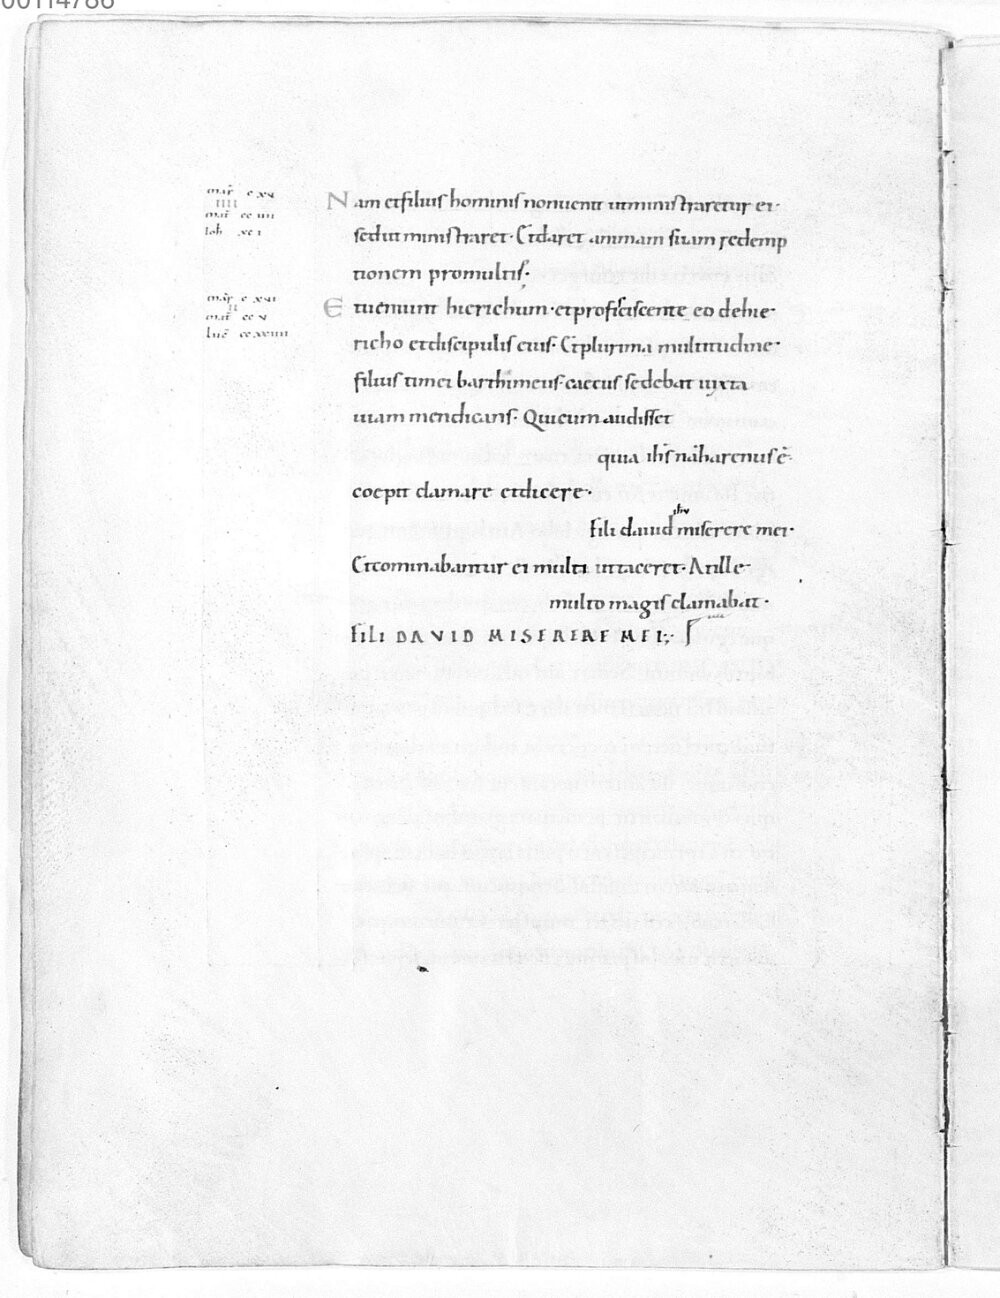 00114786
mar̄ c xvi
IIII
mat̄ cc iiii
Ioh xc i
Nam et filius hominis non uenit ut ministraretur ei·
sed ut ministraret· Et daret animam suam redemp
tionem pro multis·
mar̄ c xvii
II
mat̄ cc v
luc̄
Et ueniunt hierichum· et proficiscente eo de hie
richo et discipulis eius· Et plurima multitudine·
filius timei barthimeus· caecus sedebat iuxta
uiam mendicans· Qui cum audisset
quia ihs̄ nazarenus ē·
coepit clamare et dicere·
fili dauid miserere mei·
ihu
Et comminabantur ei multi ut taceret· At ille
multo magis clamabat·
FILI DAVID MISERERE MEI;